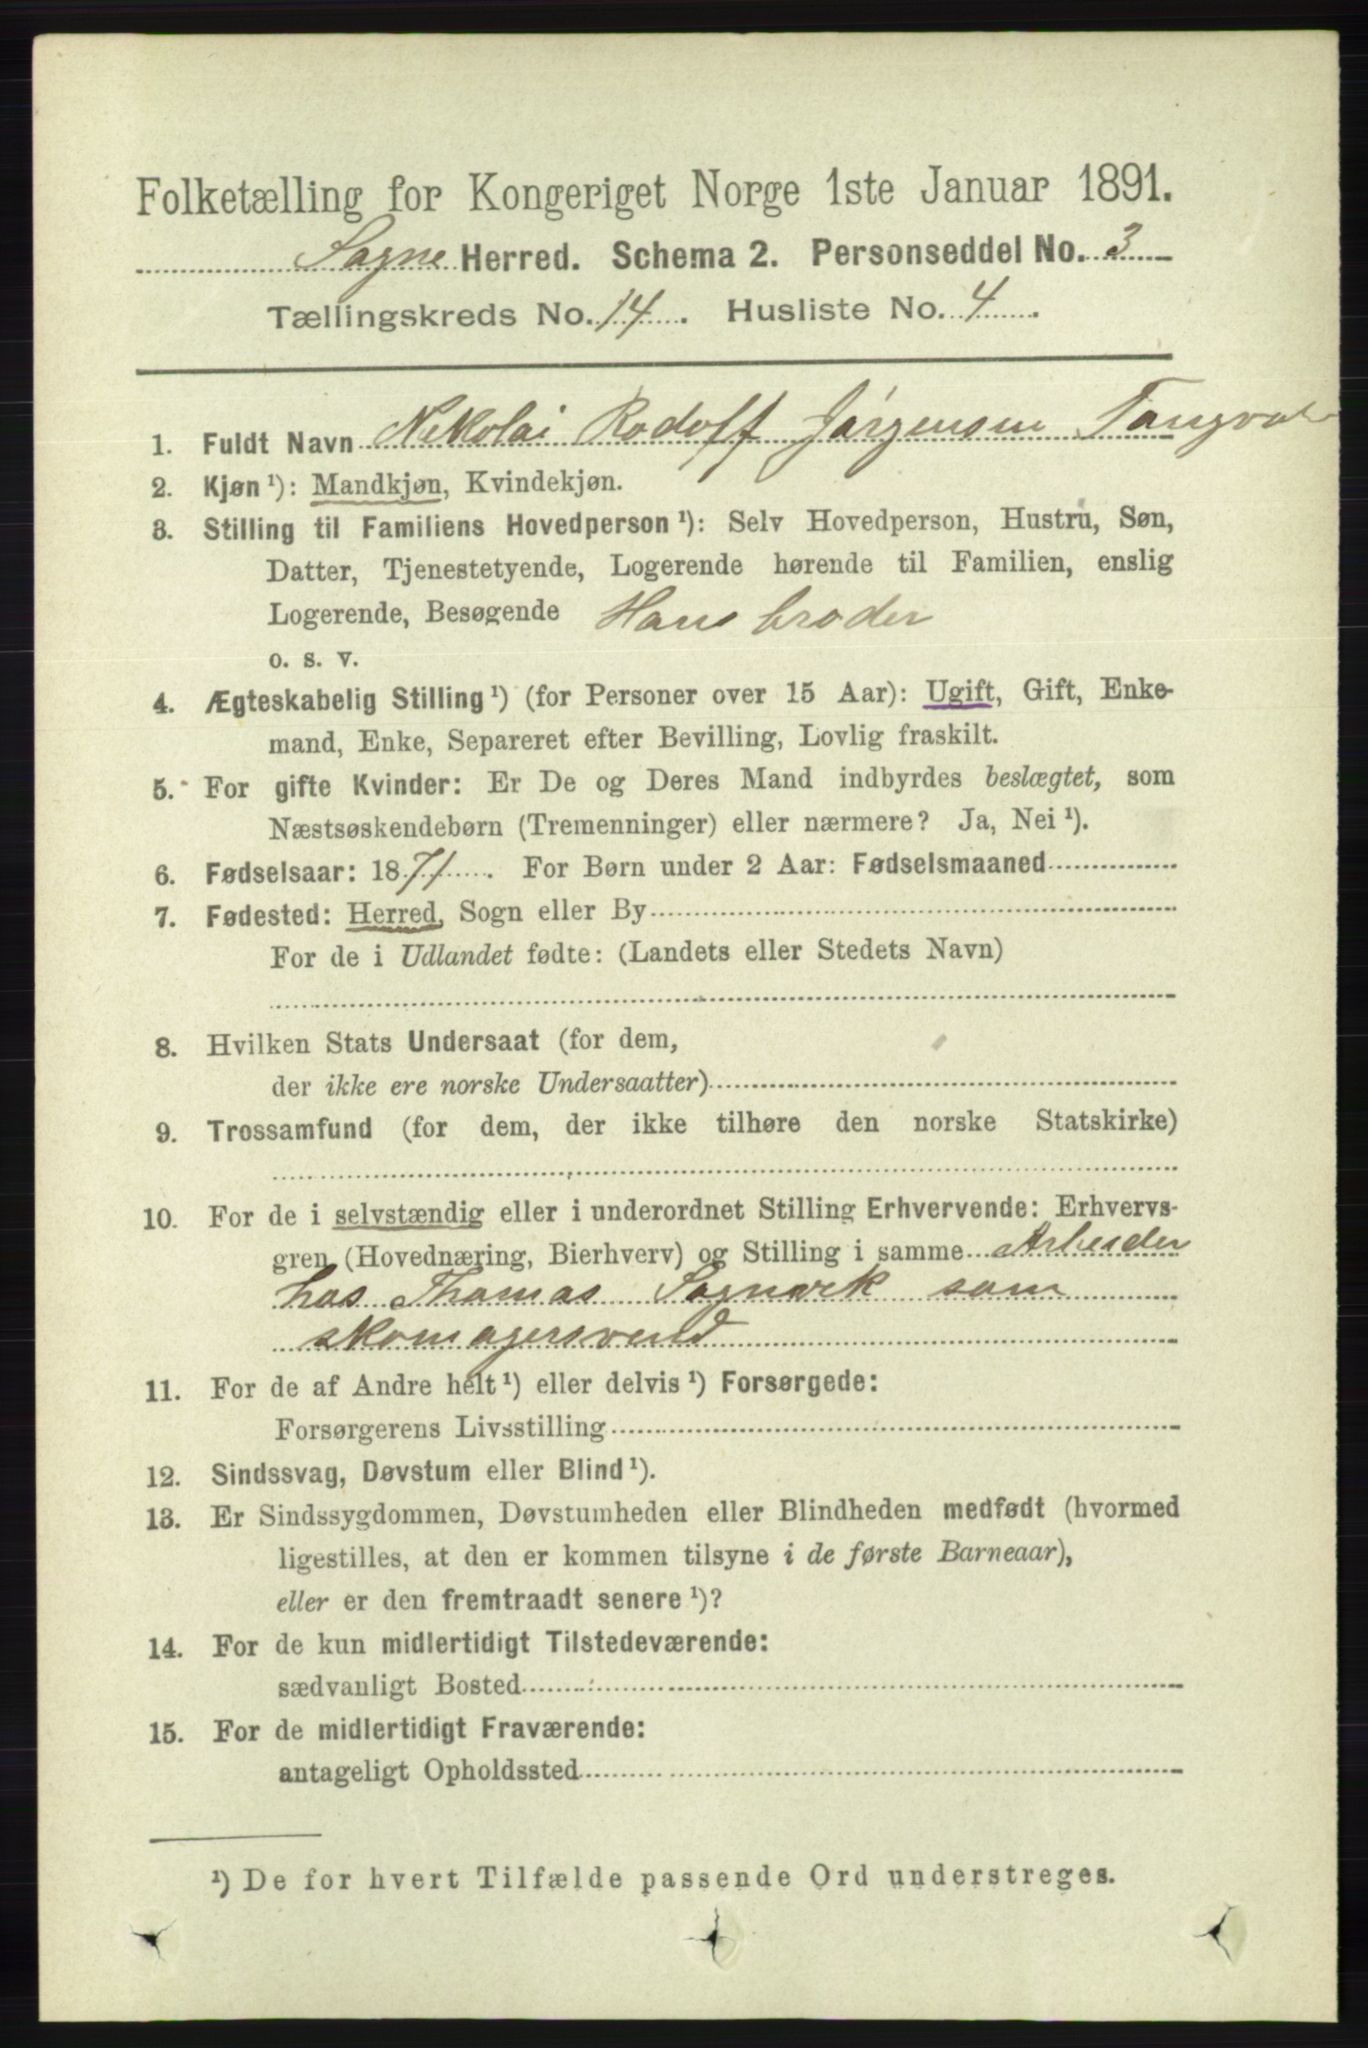 Folketælling for Kongeriget Norge 1ste Januar 1891.
Søgne Herred. Schema 2. Personseddel No. 3
Tællingskreds No. 14. Husliste No. 4.
1. Fuldt Navn Nikolai Rodolf Jørgensen Tangval
2. Kjøn ¹): Mandkjøn, Kvindekjøn.
3. Stilling til Familiens Hovedperson ¹): Selv Hovedperson, Hustru, Søn,
Datter, Tjenestetyende, Logerende hørende til Familien, enslig
Logerende, Besøgende Hans broder
o. s. v.
4. Ægteskabelig Stilling ¹) (for Personer over 15 Aar): Ugift, Gift, Enke-
mand, Enke, Separeret efter Bevilling, Lovlig fraskilt.
5. For gifte Kvinder: Er De og Deres Mand indbyrdes beslægtet, som
Næstsøskendebørn (Tremenninger) eller nærmere? Ja, Nei ¹).
6. Fødselsaar: 1871. For Børn under 2 Aar: Fødselsmaaned
7. Fødested: Herred, Sogn eller By
For de i Udlandet fødte: (Landets eller Stedets Navn)
8. Hvilken Stats Undersaat (for dem,
der ikke ere norske Undersaatter)
9. Trossamfund (for dem, der ikke tilhøre den norske Statskirke)
10. For de i selvstændig eller i underordnet Stilling Erhvervende: Erhvervs-
gren (Hovednæring, Bierhverv) og Stilling i samme Arbeider
hos Thomas som
skomagersvend
11. For de af Andre helt ¹) eller delvis ¹) Forsørgede:
Forsørgerens Livsstilling
12. Sindssvag, Døvstum eller Blind ¹).
13. Er Sindssygdommen, Døvstumheden eller Blindheden medfødt (hvormed
ligestilles, at den er kommen tilsyne i de første Barneaar),
eller er den fremtraadt senere ¹)?
14. For de kun midlertidigt Tilstedeværende:
sædvanligt Bosted
15. For de midlertidigt Fraværende:
antageligt Opholdssted
¹) De for hvert Tilfælde passende Ord understreges.